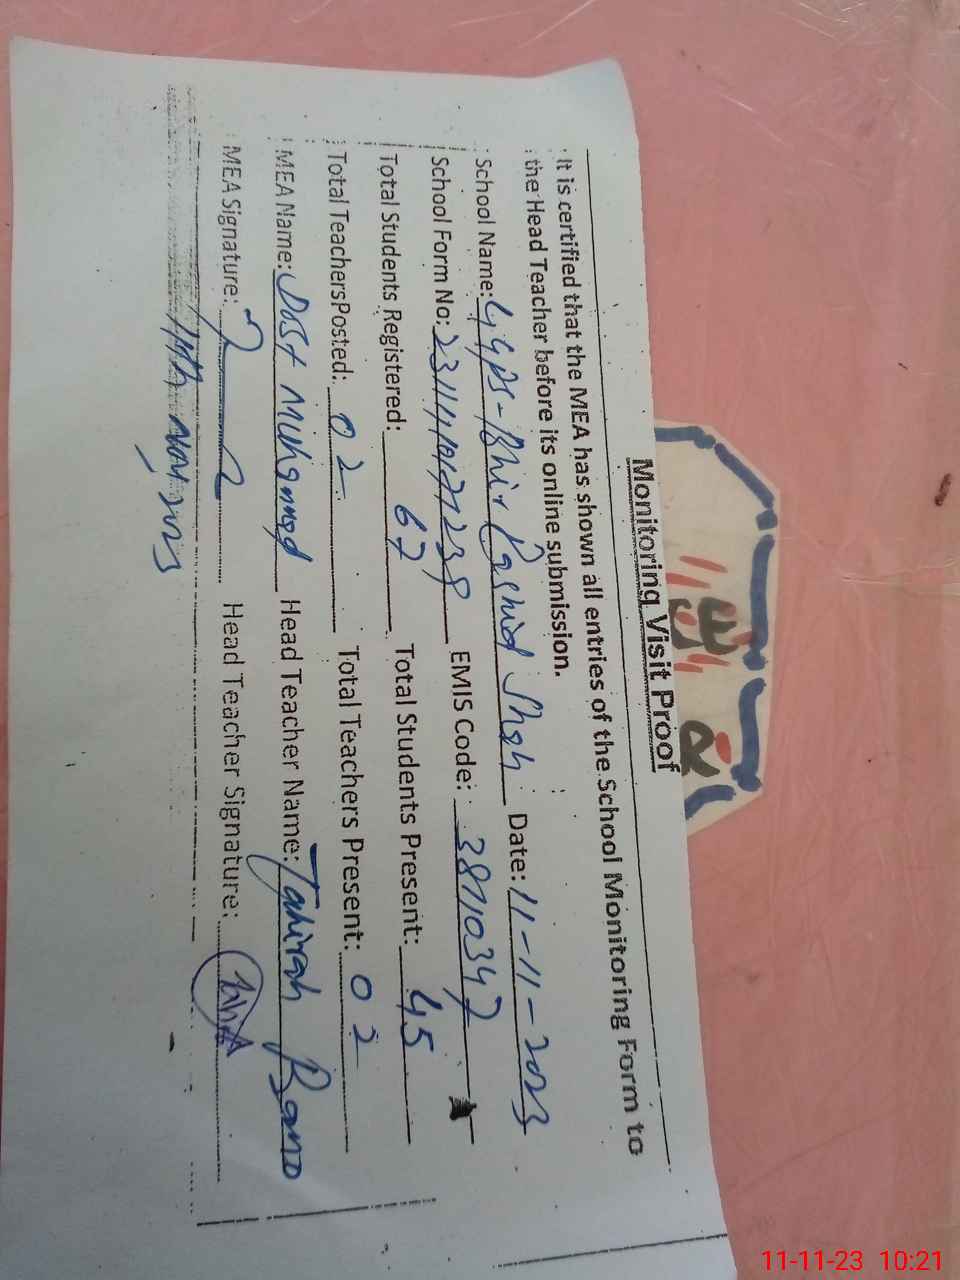 Monitoring Visit Proof
It is certified that the MEA has shown all entries of the School Monitoring Form to
the Head Teacher before its online submission.
School Name: GGPS-Bhir Rashid Shah Date: 11-11-2023
School Form No: EMIS Code: 38110347
Total Students Registered: 67 Total Students Present: 45
Total TeachersPosted: 02 Total Teachers Present: 02
MEA Name: Dost Muhammad Head Teacher Name: Tahirah Bano
MEA Signature: Head Teacher Signature:
11th Nov, 2023
11-11-23 10:21